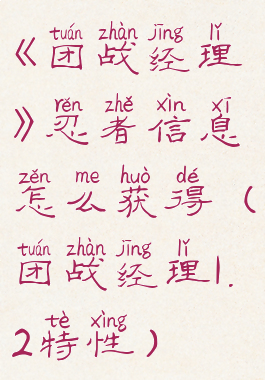 tuán zhàn jīng lǐ
《团战经理
rěn zhě xìn xī
》忍者信息
zěn me huò dé
怎么获得（
tuán zhàn jīng lǐ
团战经理1.
tè xìng
2特性）